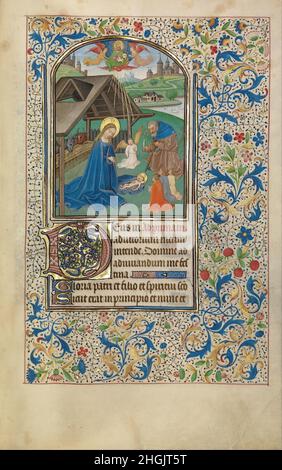 Deus in Ad primam
adiutorium meum
intende. Domine ad
adiuuandum me fes
tina
Gloria patri et filio et spiritui
Sicut erat in principio et nunc et
alamy - 2HGJT5T